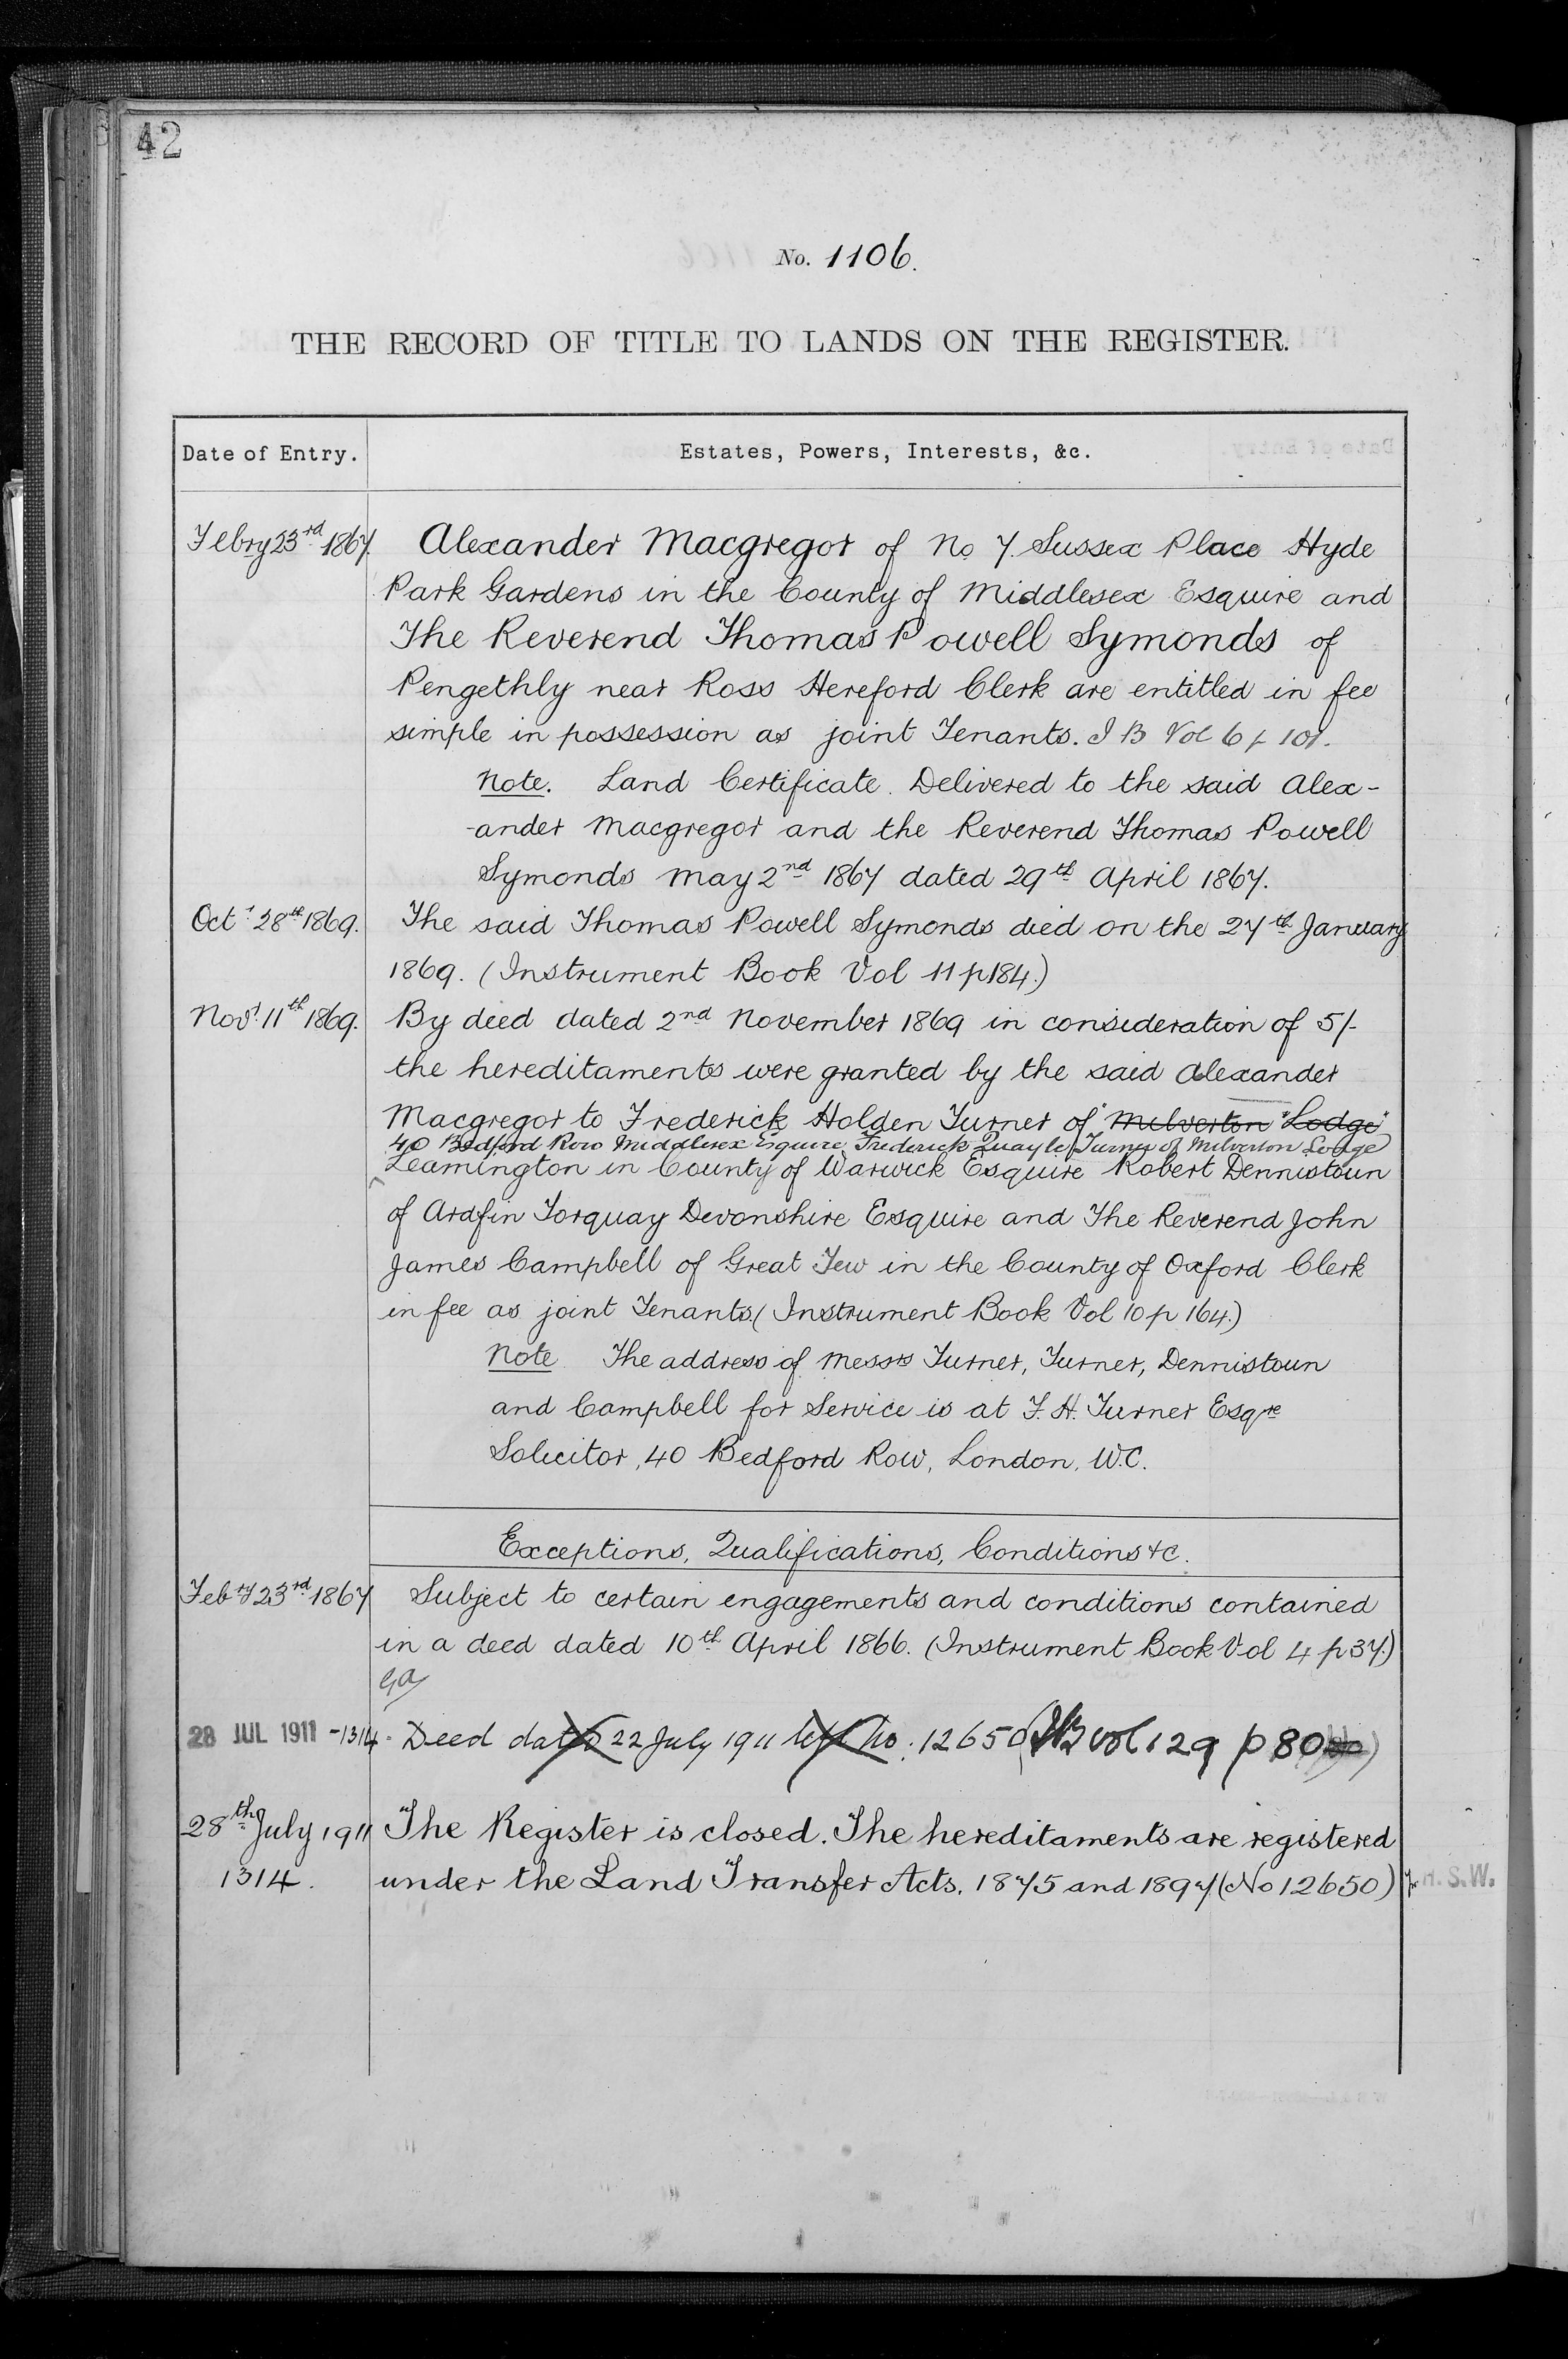 42
No. 1106.
THE RECORD OF TITLE TO LANDS ON THE REGISTER.
Date of Entry. Estates, Powers, Interests, &c.
Febry 23rd 1867. Alexander Macgregor of No 7. Sussex Place Hyde
Park Gardens in the County of Middlesex Esquire and
The Reverend Thomas Powell Symonds of
Pengethly near Ross Hereford Clerk are entitled in fee
simple in possession as joint Tenants. I B Vol 6 p 101.
Note. Land Certificate. Delivered to the said Alex-
-ander Macgregor and the Reverend Thomas Powell
Symonds May 2nd 1867 dated 29th April 1867.
Octr 28th 1869. The said Thomas Powell Symonds died on the 27th January
1869. (Instrument Book Vol 11 p184.)
Novr. 11th 1869. By deed dated 2nd November 1869 in consideration of 5/-
the hereditaments were granted by the said Alexander
Macgregor to Frederick Holden Turner of "Milverton "Lodge"
40 Bedford Row Middlesex Esquire, Frederick Quayle Turner of Milverton Lodge
Leamington in County of Warwick Esquire Robert Dennistoun
of Ardfin Torquay Devonshire Esquire and The Reverend John
James Campbell of Great Tew in the County of Oxford Clerk
in fee as joint Tenants. (Instrument Book Vol 10 p 164.)
Note. The address of Messrs Turner, Turner, Dennistoun
and Campbell for Service is at F. H. Turner Esqre
Solicitor, 40 Bedford Row, London, W.C.
Exceptions, Qualifications, Conditions &c.
Febry 23rd 1867 Subject to certain engagements and conditions contained
in a deed dated 10th April 1866. (Instrument Book Vol 4 p 37.)
28 JUL 1911 -1314- Deed dated 22 July 1911 No: 12650 (IB vol 129 p 80)
28th July 1911 The Register is closed. The hereditaments are registered
1314. under the Land Transfer Acts. 1875 and 1897 (No 12650) H. S. W.